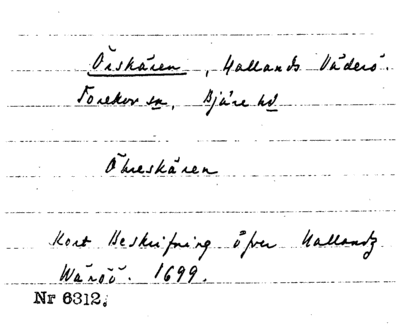 Örskären, Hallands Väderö.
Torekov sn, Bjäre hd
Öhreskären
Kort Beskrifning öfver Hallandz
Wäröö. 1699.
Nr 6312.